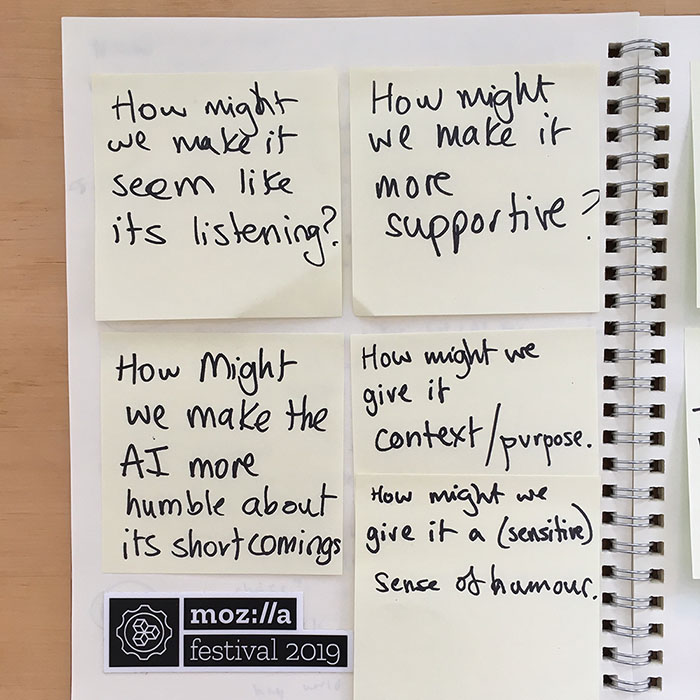 How might
we make it
seem like
its listening?
How might
we make it
more
supportive?
How Might
we make the
AI more
humble about
its shortcomings
How might we
give it
context/purpose.
How might we
give it a (sensitive)
sense of humour.
moz://a
festival 2019